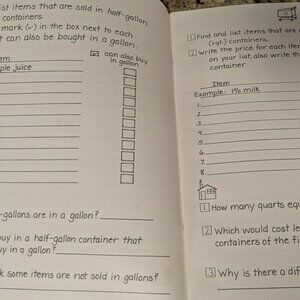 ist items that are sold in half-gallon
containers.
mark (✓) in the box next to each
t can also be bought in a gallon.
can also buy
in gallon
em
ple juice
-gallons are in a gallon?
uy in a half-gallon container that
uy in a gallon?
k some items are not sold in gallons?
1 Find and list items that are
(1-qt.) containers.
2 Write the price for each item
on your list, also write th
container.
Item
Example: 1% milk
1.
2.
3.
4.
5.
6.
7.
8.
1 How many quarts equ
2 Which would cost le
containers of the fi
3 Why is there a dif